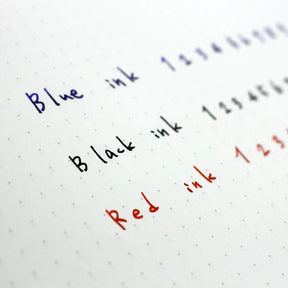 Blue ink 1 2 3 4 5 6 7 8
Black ink 1 2 3 4 5 6
Red ink 1 2 3